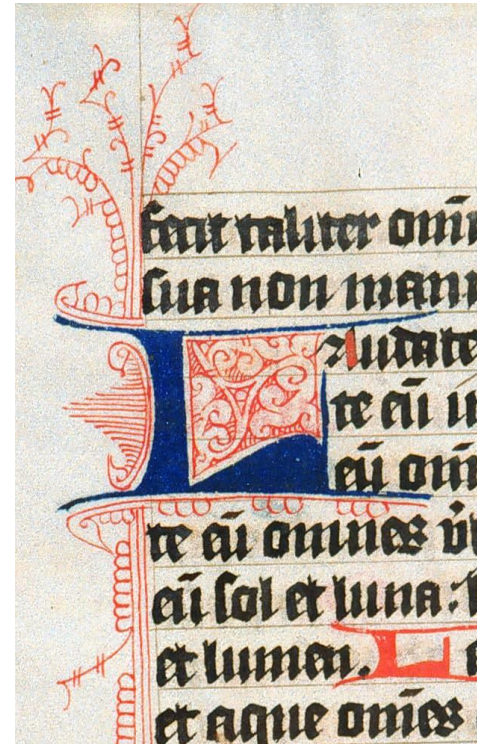 fecit taliter om̄
sua non mani
Laudate
te eū i
eū om̄
te eū omnes
eū sol et luna: l
et lumen. L
et aque om̄es